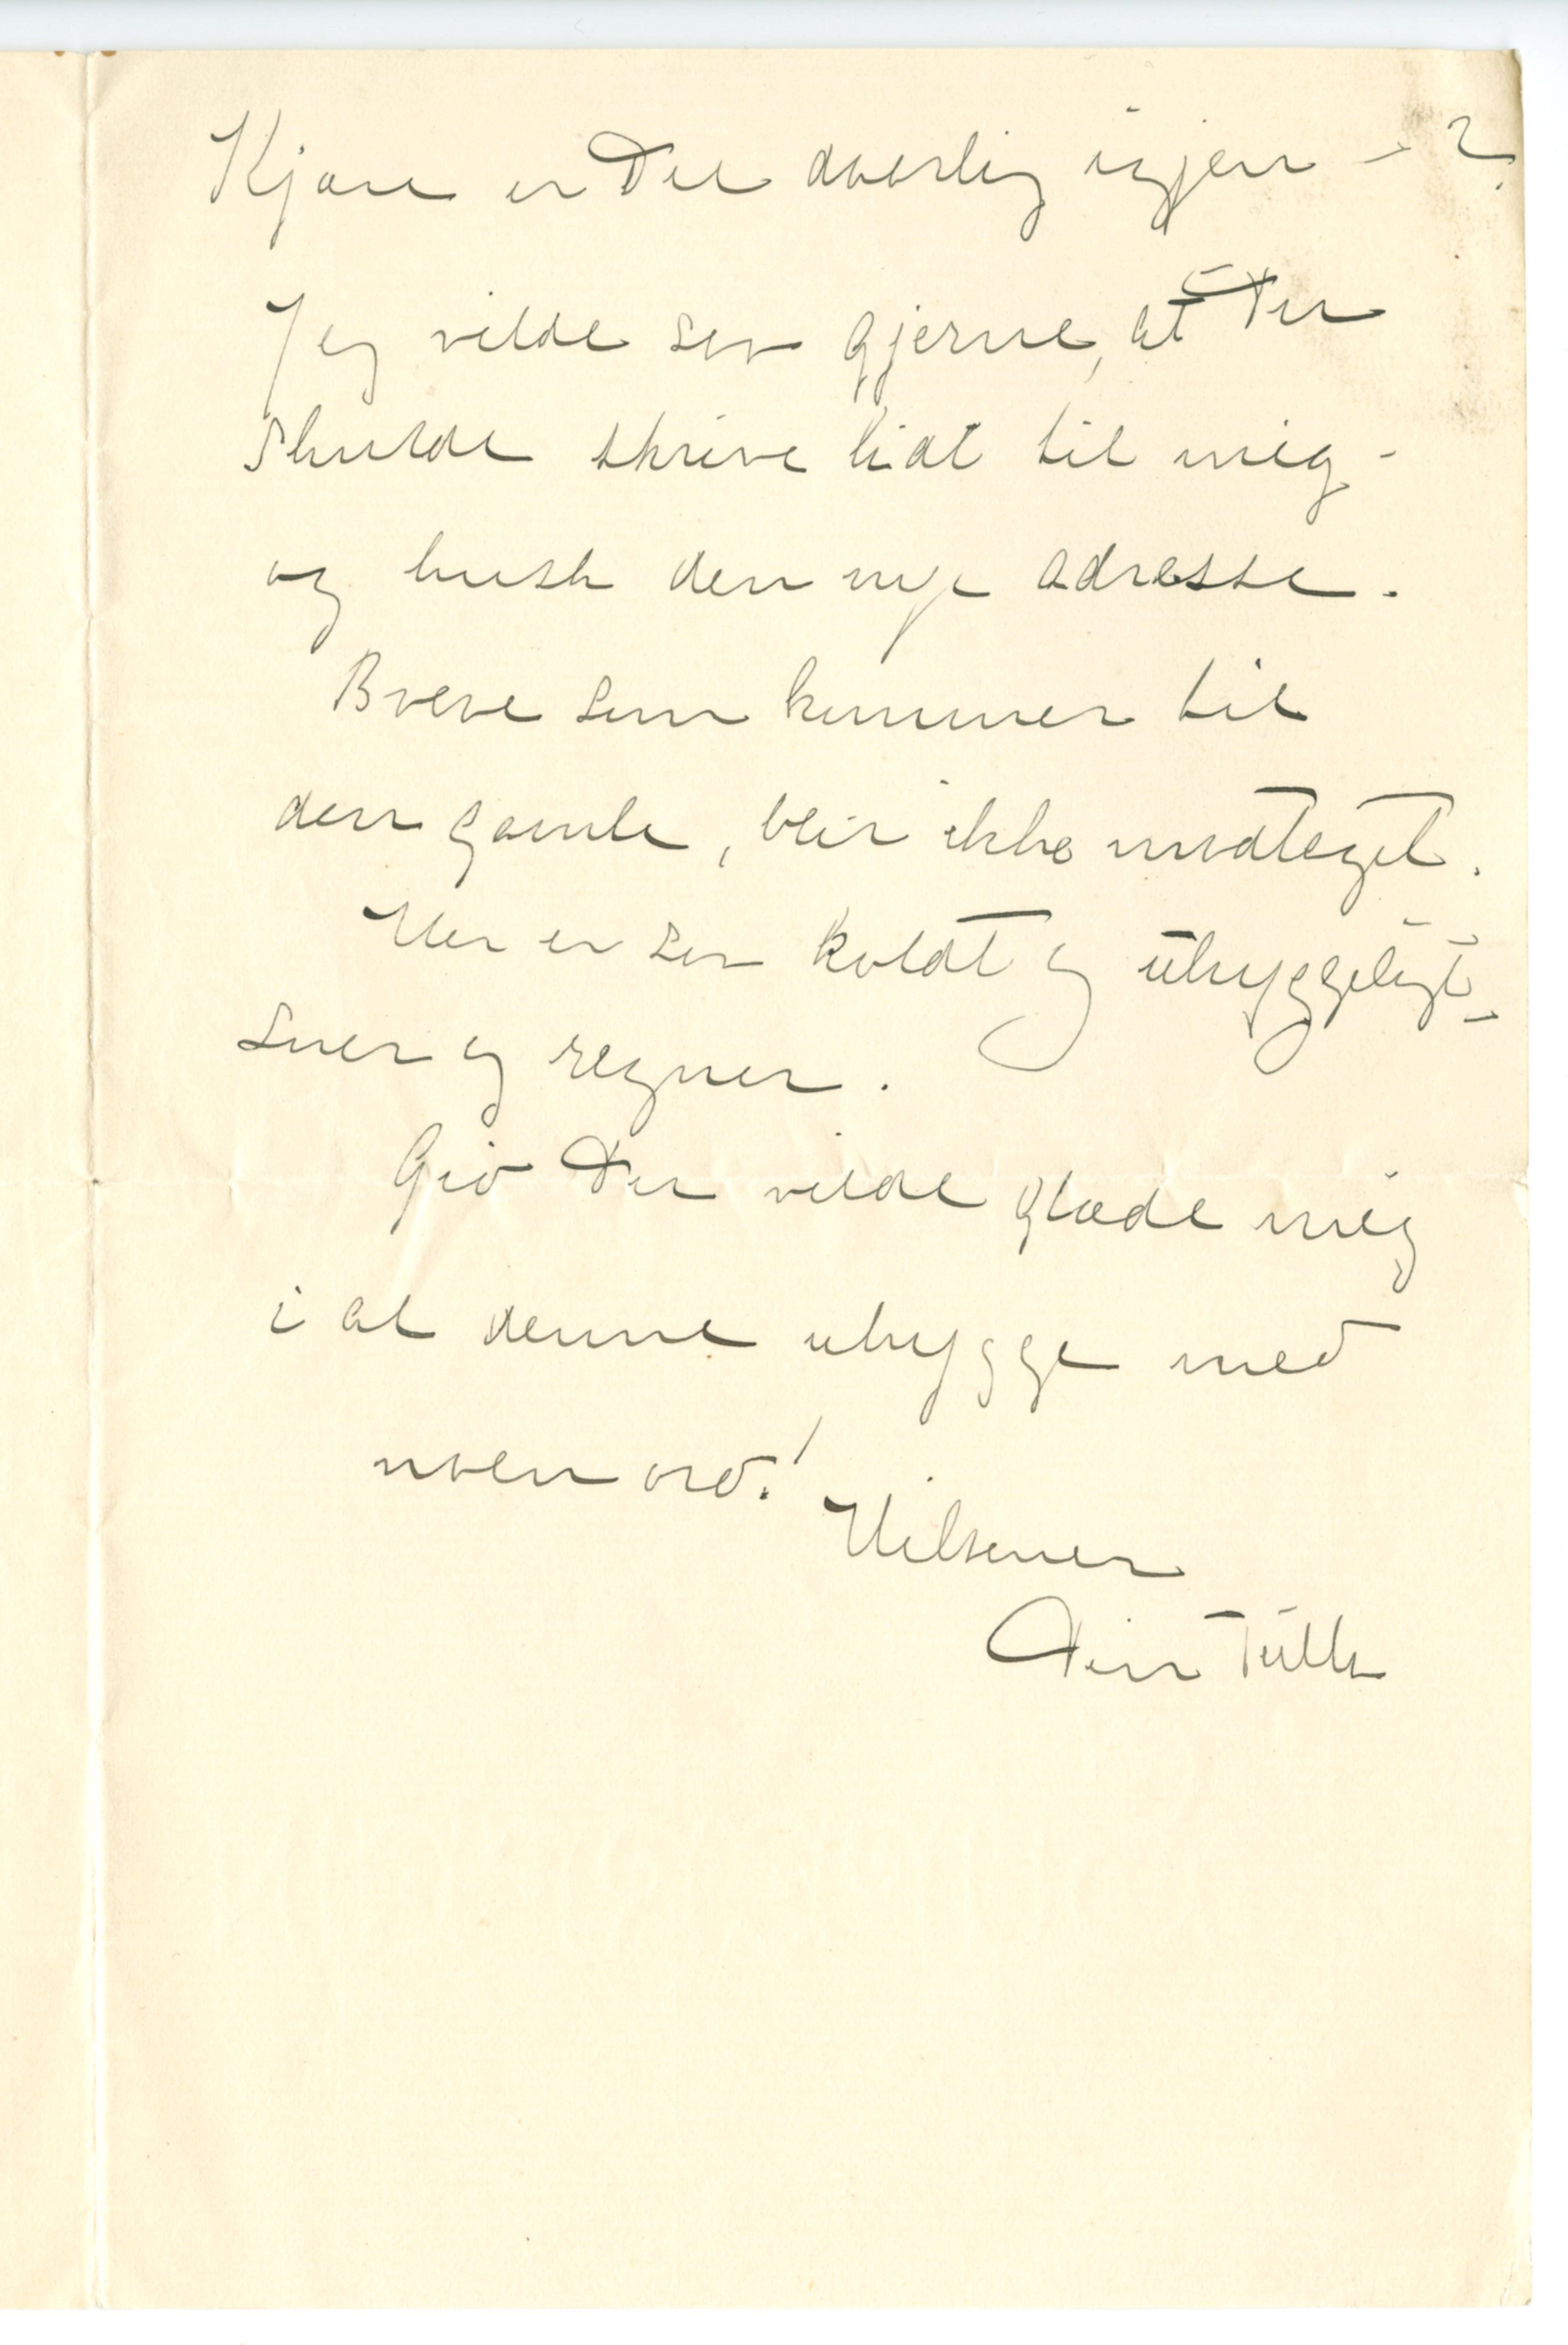 Kjære er Du daarlig igjen – ?
Jeg vilde saa gjerne, at Du
skulde skrive lidt til mig -
og husk den nye adresse.
Breve som kommer til
den gamle, blir ikke modtaget.
Her er saa koldt og uhyggeligt –
sner og regner.
Gid Du vilde glæde mig
i al denne uhygge med
noen ord!
Hilsener
Din Tulla